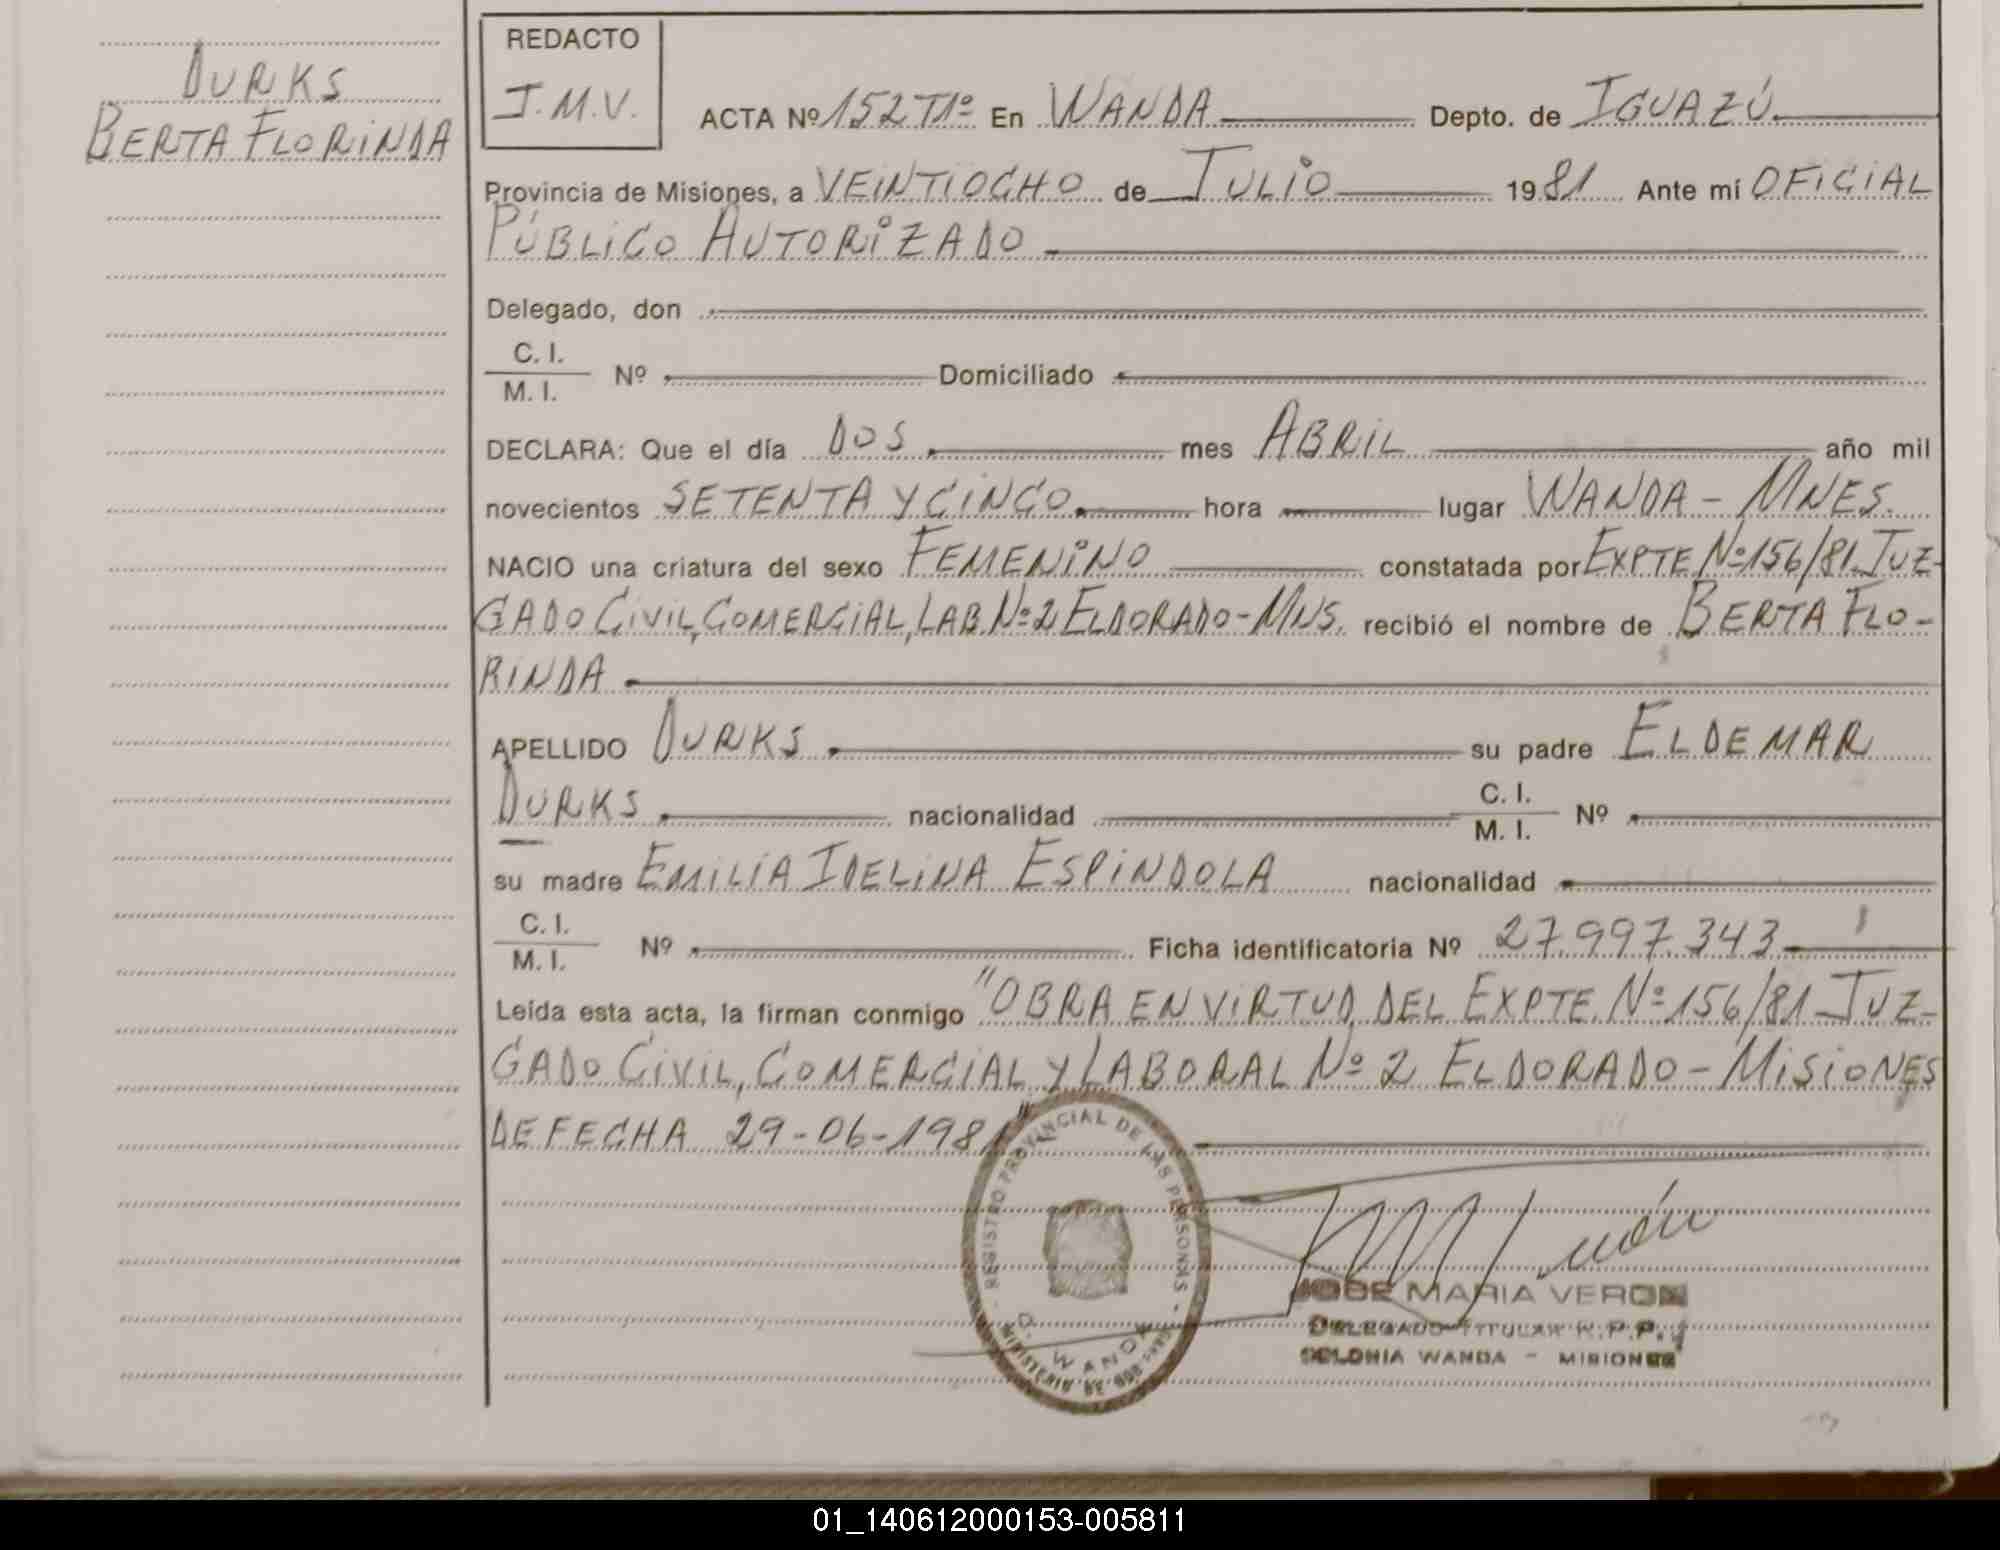 DURKS
BERTA FLORINDA
REDACTO
J.M.V.
ACTA Nº 152 Tº 1º En WANDA Depto. de IGUAZÚ
Provincia de Misiones, a VEINTIOCHO de JULIO 1981 Ante mí OFICIAL
PÚBLICO AUTORIZADO
Delegado, don
C. I.
M. I. Nº Domiciliado
DECLARA: Que el día DOS mes ABRIL año mil
novecientos SETENTA Y CINCO hora lugar WANDA - MNES.
NACIO una criatura del sexo FEMENINO constatada por EXPTE Nº 156/81 JUZ-
GADO CIVIL, COMERCIAL, LAB. Nº 2 ELDORADO - MNS. recibió el nombre de BERTA FLO-
RINDA
APELLIDO DURKS su padre ELDEMAR
DURKS nacionalidad C. I.
M. I. Nº
su madre EMILIA IDELINA ESPINDOLA nacionalidad
C. I.
M. I. Nº Ficha identificatoria Nº 27.997.343
Leída esta acta, la firman conmigo "OBRA EN VIRTUD DEL EXPTE. Nº 156/81 JUZ-
GADO CIVIL, COMERCIAL Y LABORAL Nº 2 ELDORADO - MISIONES
DE FECHA 29-06-1981"
REGISTRO PROVINCIAL DE LAS PERSONAS
WANDA
MINISTERIO DE
JOSE MARIA VERON
DELEGADO TITULAR R.P.P.
COLONIA WANDA - MISIONES
01_140612000153-005811